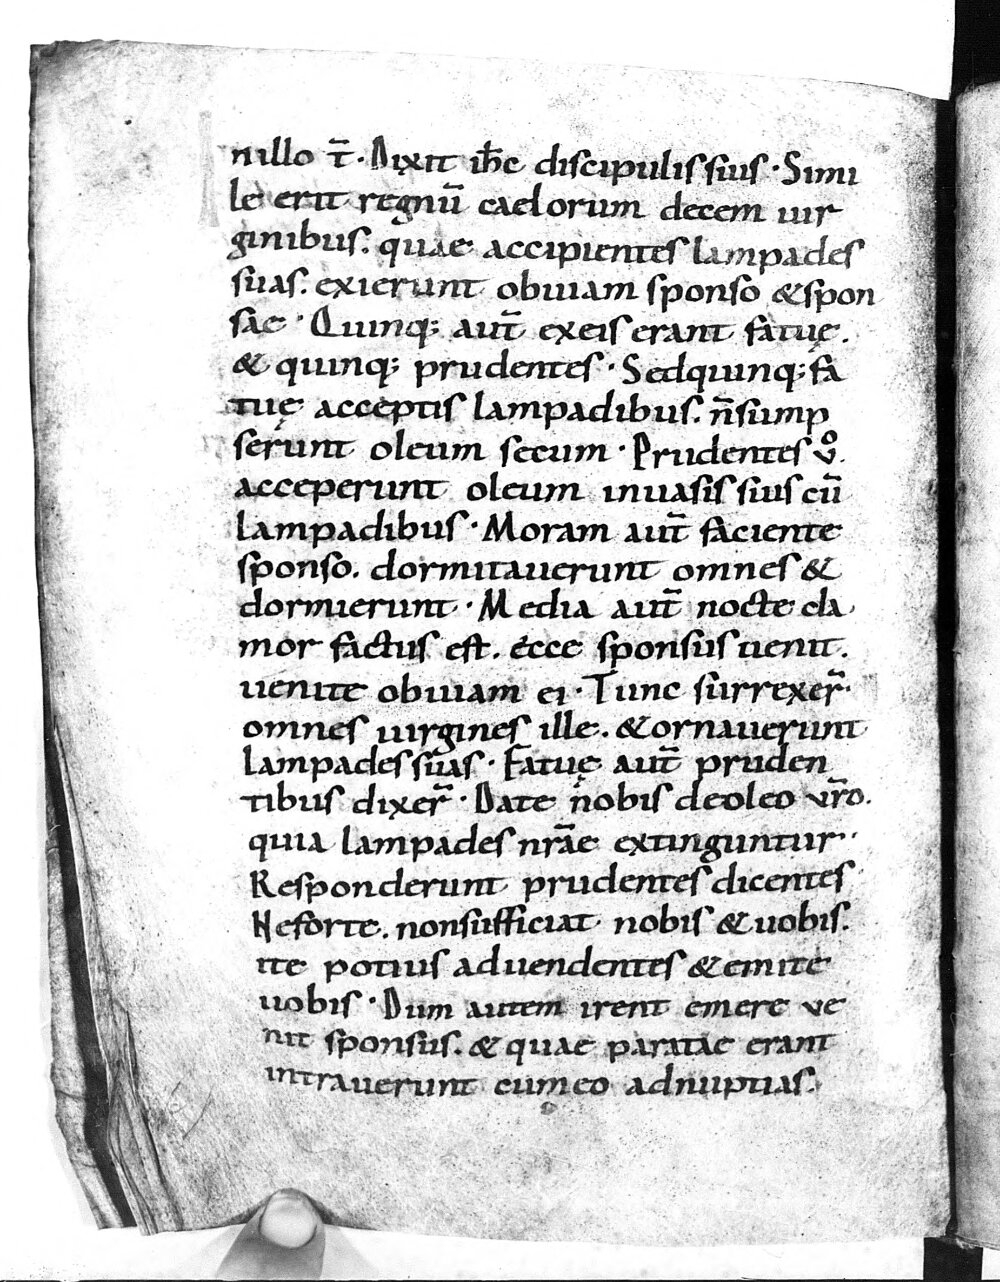 nillo t̄· Dixit ih̄c discipulis suis· Simi
le erit regnū caelorum decem uir
ginibus. quae accipientes lampades
suas. exierunt obuiam sponso &spon
sae· Quinq; aut̄ exeis erant fatuę.
& quinq; prudentes· Sedquinq; fa
tuę acceptis lampadibus. n̄sump
serunt oleum secum· Prudentes v̊.
acceperunt oleum inuasis suis cū
lampadibus· Moram aut̄ faciente
sponso. dormitauerunt omnes &
dormierunt· Media aut̄ nocte cla
mor factus est. ecce sponsus uenit.
uenite obuiam ei· Tunc surrexer̄·
omnes uirgines ille. &ornauerunt
lampades suas· Fatuę aut̄ pruden
tibus dixer̄· Date nobis deoleo vr̄o.
quia lampades nr̄ae extinguntur·
Responderunt prudentes dicentes
Neforte. nonsufficiat nobis &uobis.
ite potius aduendentes &emite
uobis· Dum autem irent emere ve
nit sponsus. & quae paratae erant
intrauerunt cumeo adnuptias.